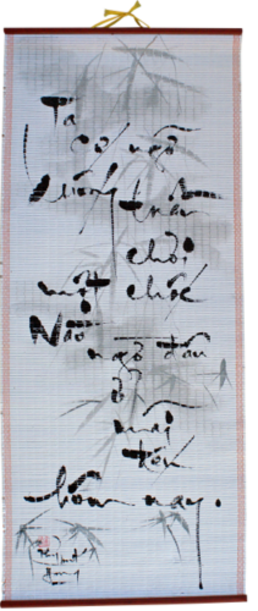 Ta
cớ ngỡ
xuống trần
chơi
một chốc
Nào
ngờ đâu
ở
mãi
đến
hôm nay.